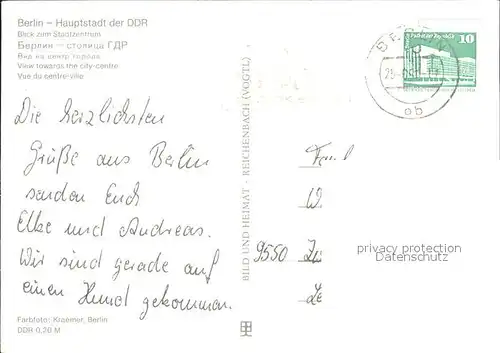 Berlin – Hauptstadt der DDR
Blick zum Stadtzentrum
Берлин – столица ГДР
Вид на центр города
View towards the city-centre
Vue du centre-ville
Die herzlichsten
Grüße aus Berlin
senden Euch
Elke und Andreas.
Wir sind gerade auf
einen
gekommen.
Farbfoto: Kraemer, Berlin
DDR 0,20 M
BILD UND HEIMAT · REICHENBACH (VOGTL)
10
ob
W.
9550
privacy protection
Datenschutz